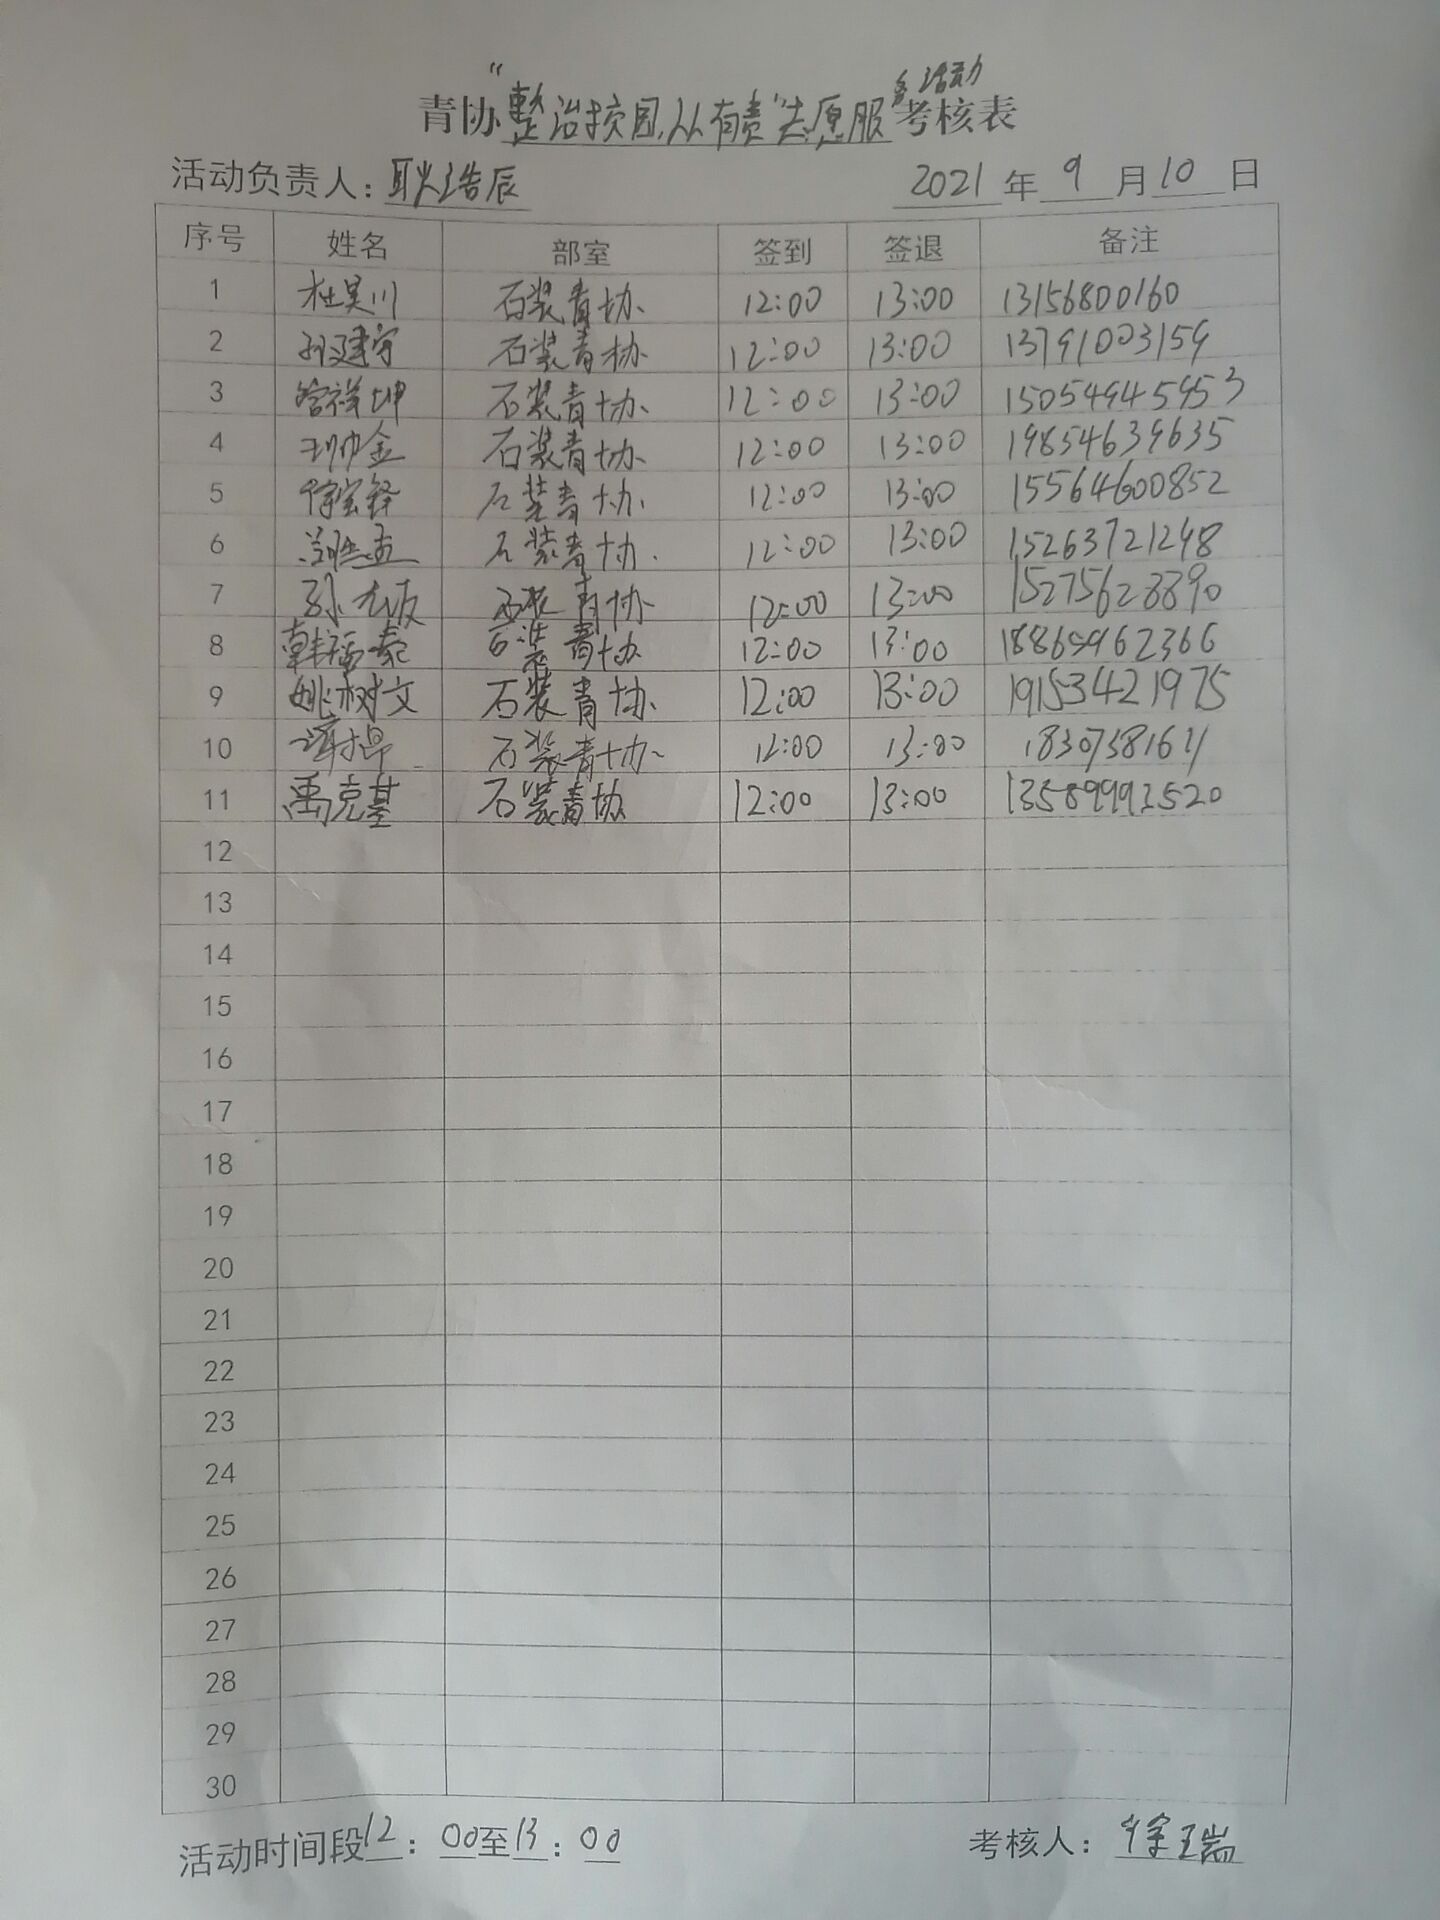 青协“整治校园,从有责”志愿服务活动考核表
活动负责人：耿浩辰 2021年9月10日
序号 姓名 部室 签到 签退 备注
1 杜昊川 石装青协 12:00 13:00 13156800160
2 孙建宇 石装青协 12:00 13:00 13791003159
3 管祥坤 石装青协 12:00 13:00 15054945953
4 石装青协 12:00 13:00 19854639635
5 徐宝铎 石装青协 12:00 13:00 15564600852
6 石装青协 12:00 13:00 15263721248
7 石装青协 12:00 13:00 15275628890
8 韩福泰 石装青协 12:00 13:00
9 姚树文 石装青协 12:00 13:00 19153421975
10 石装青协 12:00 13:00
11 禹克基 石装青协 12:00 13:00
12
13
14
15
16
17
18
19
20
21
22
23
24
25
26
27
28
29
30
活动时间段12：00至13：00 考核人：徐玉端